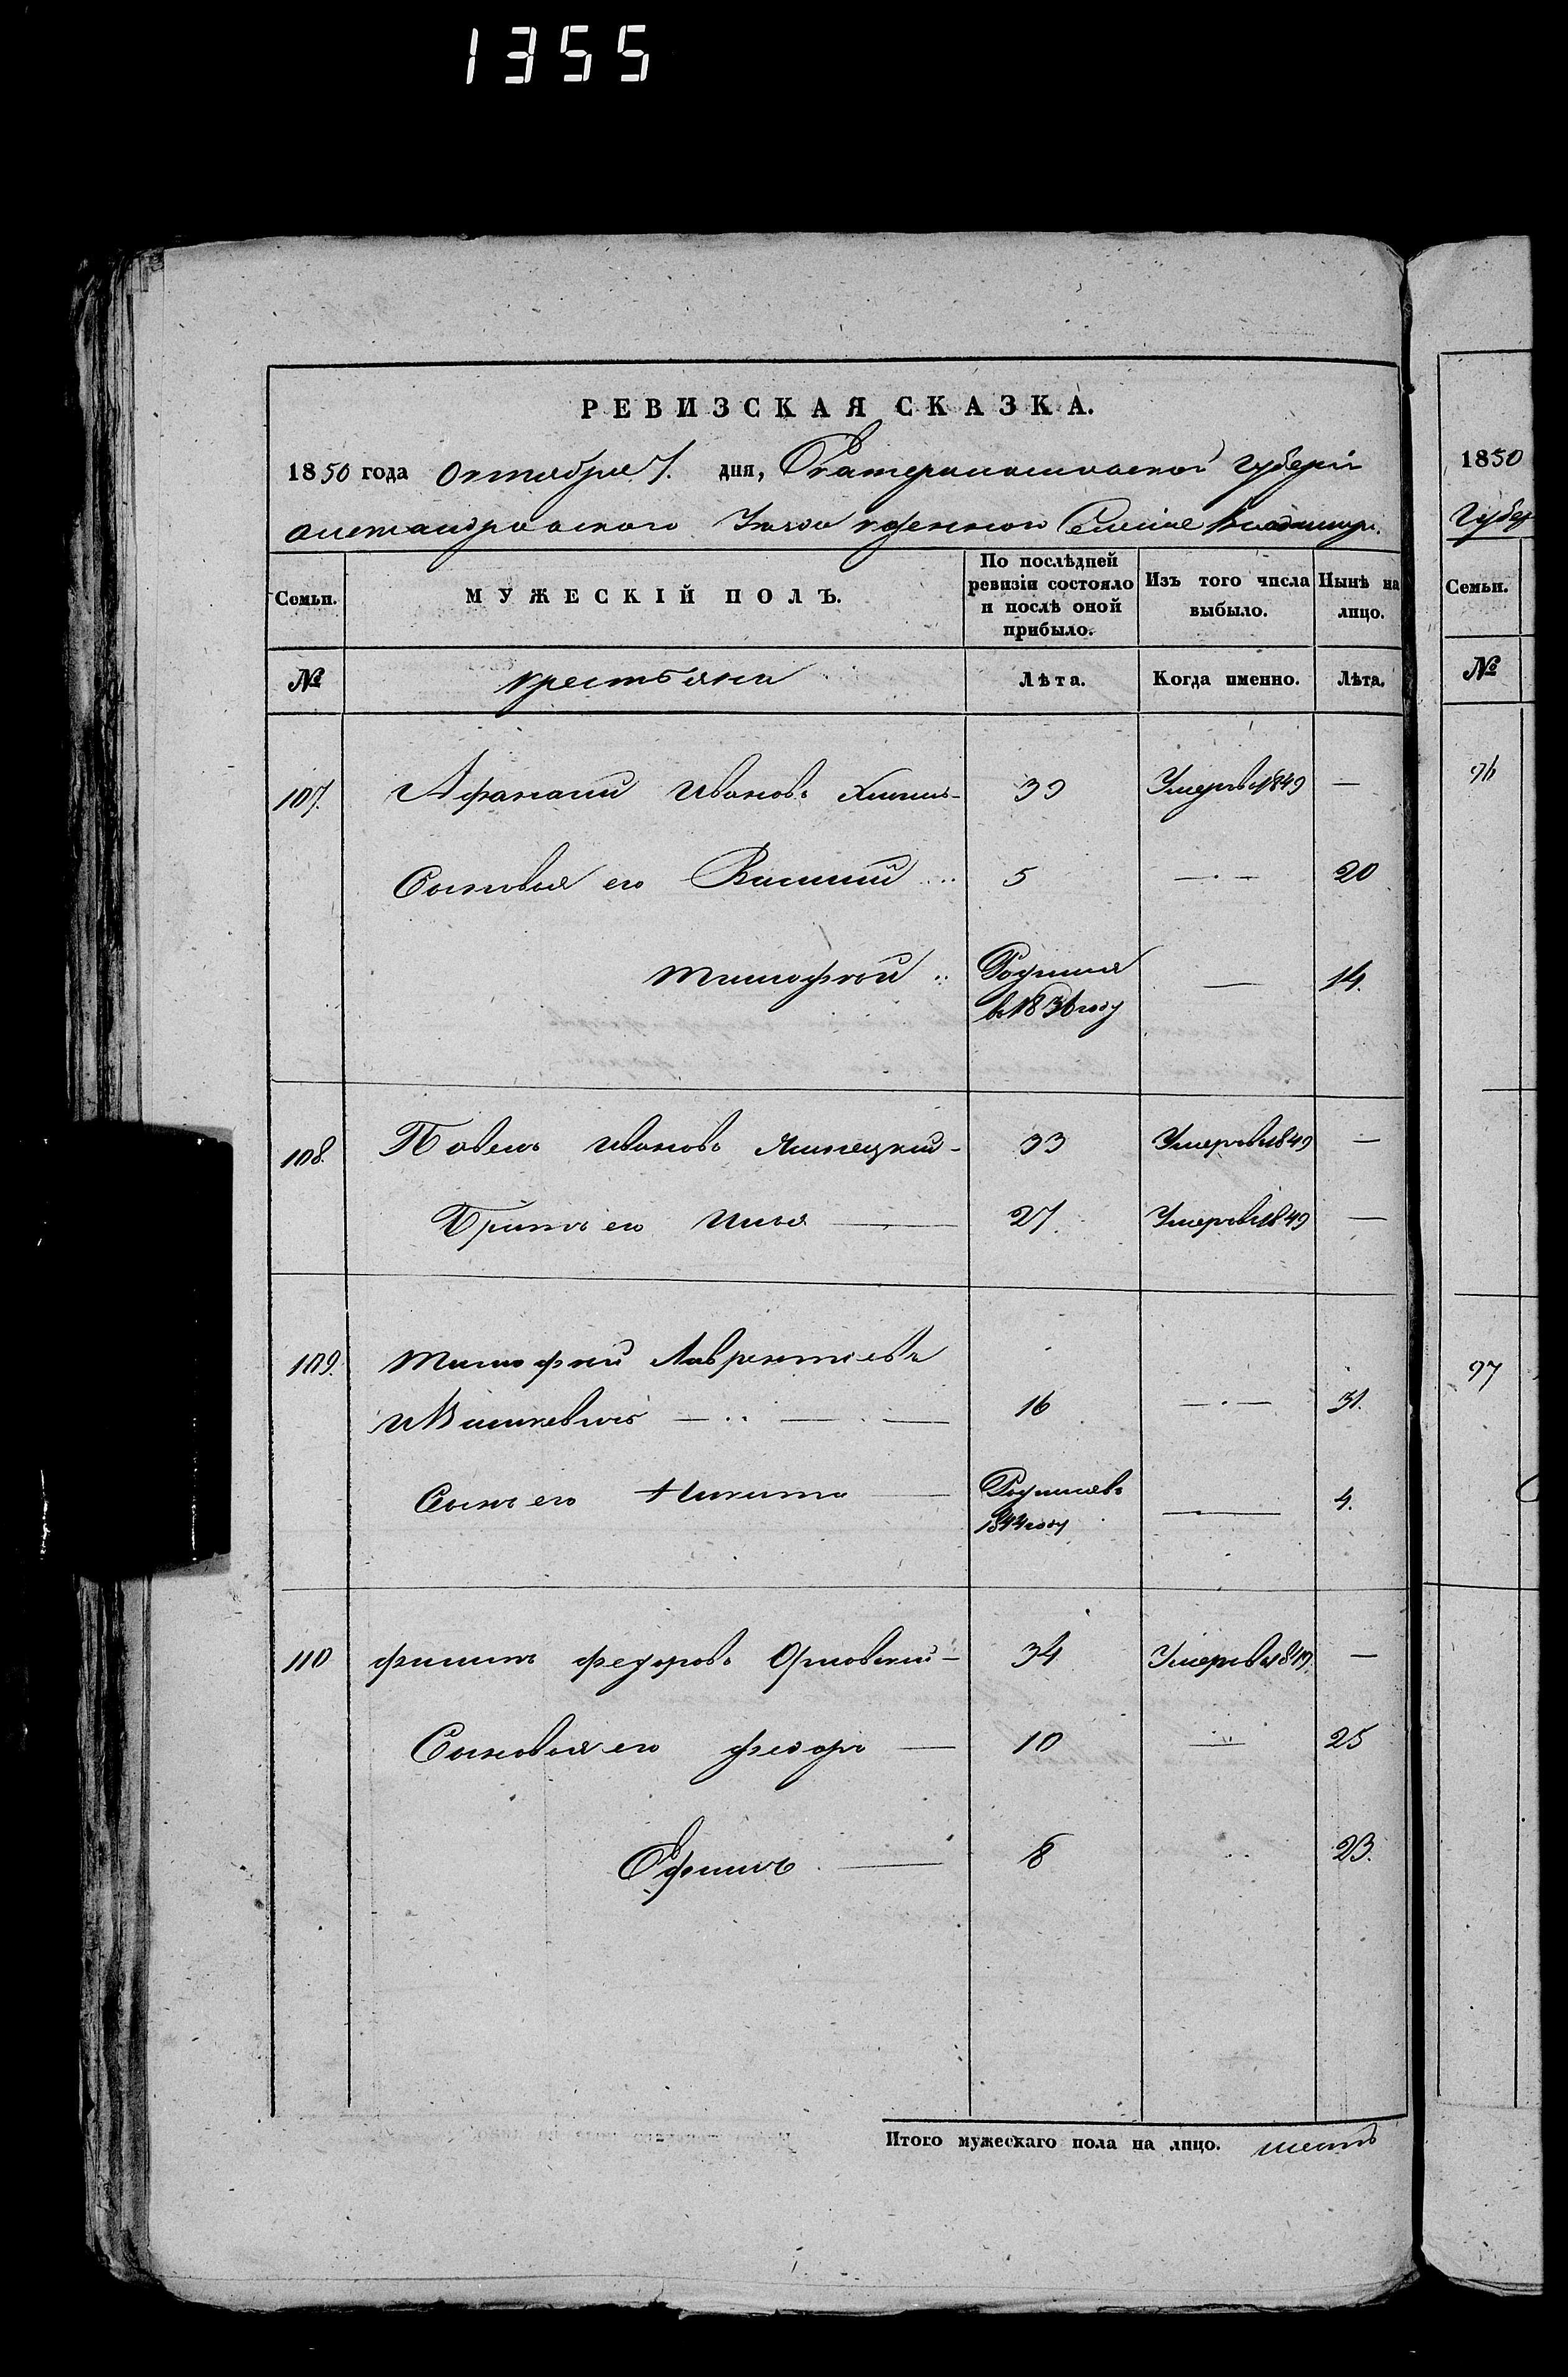 1355
РЕВИЗСКАЯ СКАЗКА.
1850 года Октября 7. дня, Екатеринославской Губерніи
Александровского Уезда казенного Селенія Владимир.
Семьи. МУЖЕСКІЙ ПОЛЪ. По послѣдней ревизіи состояло и послѣ оной прибыло. Изъ того числа выбыло. Нынѣ на лицо.
№ крестьяни Лѣта. Когда именно. Лѣта.
107. Афанасий Ивановъ 39 Умеръ в 1849 —
Сыновья его Василий 5 — 20
Тимофей Родился в 1836 году — 14.
108. Павелъ Ивановъ 33 Умеръ в 1849 —
Братъ его Илья 27. Умеръ в 1849 —
109. Тимофей Лаврентіевъ
16 — 31.
Сынъ его Никита Родился в 1844 году — 4.
110 Филипъ Федоровъ Орловский 34 Умеръ в 1849. —
Сыновья его Федоръ 10 — 25
Ефимъ 8 23.
Итого мужескаго пола на лицо. шесть
1850
Губер
Семьи.
№
96
97